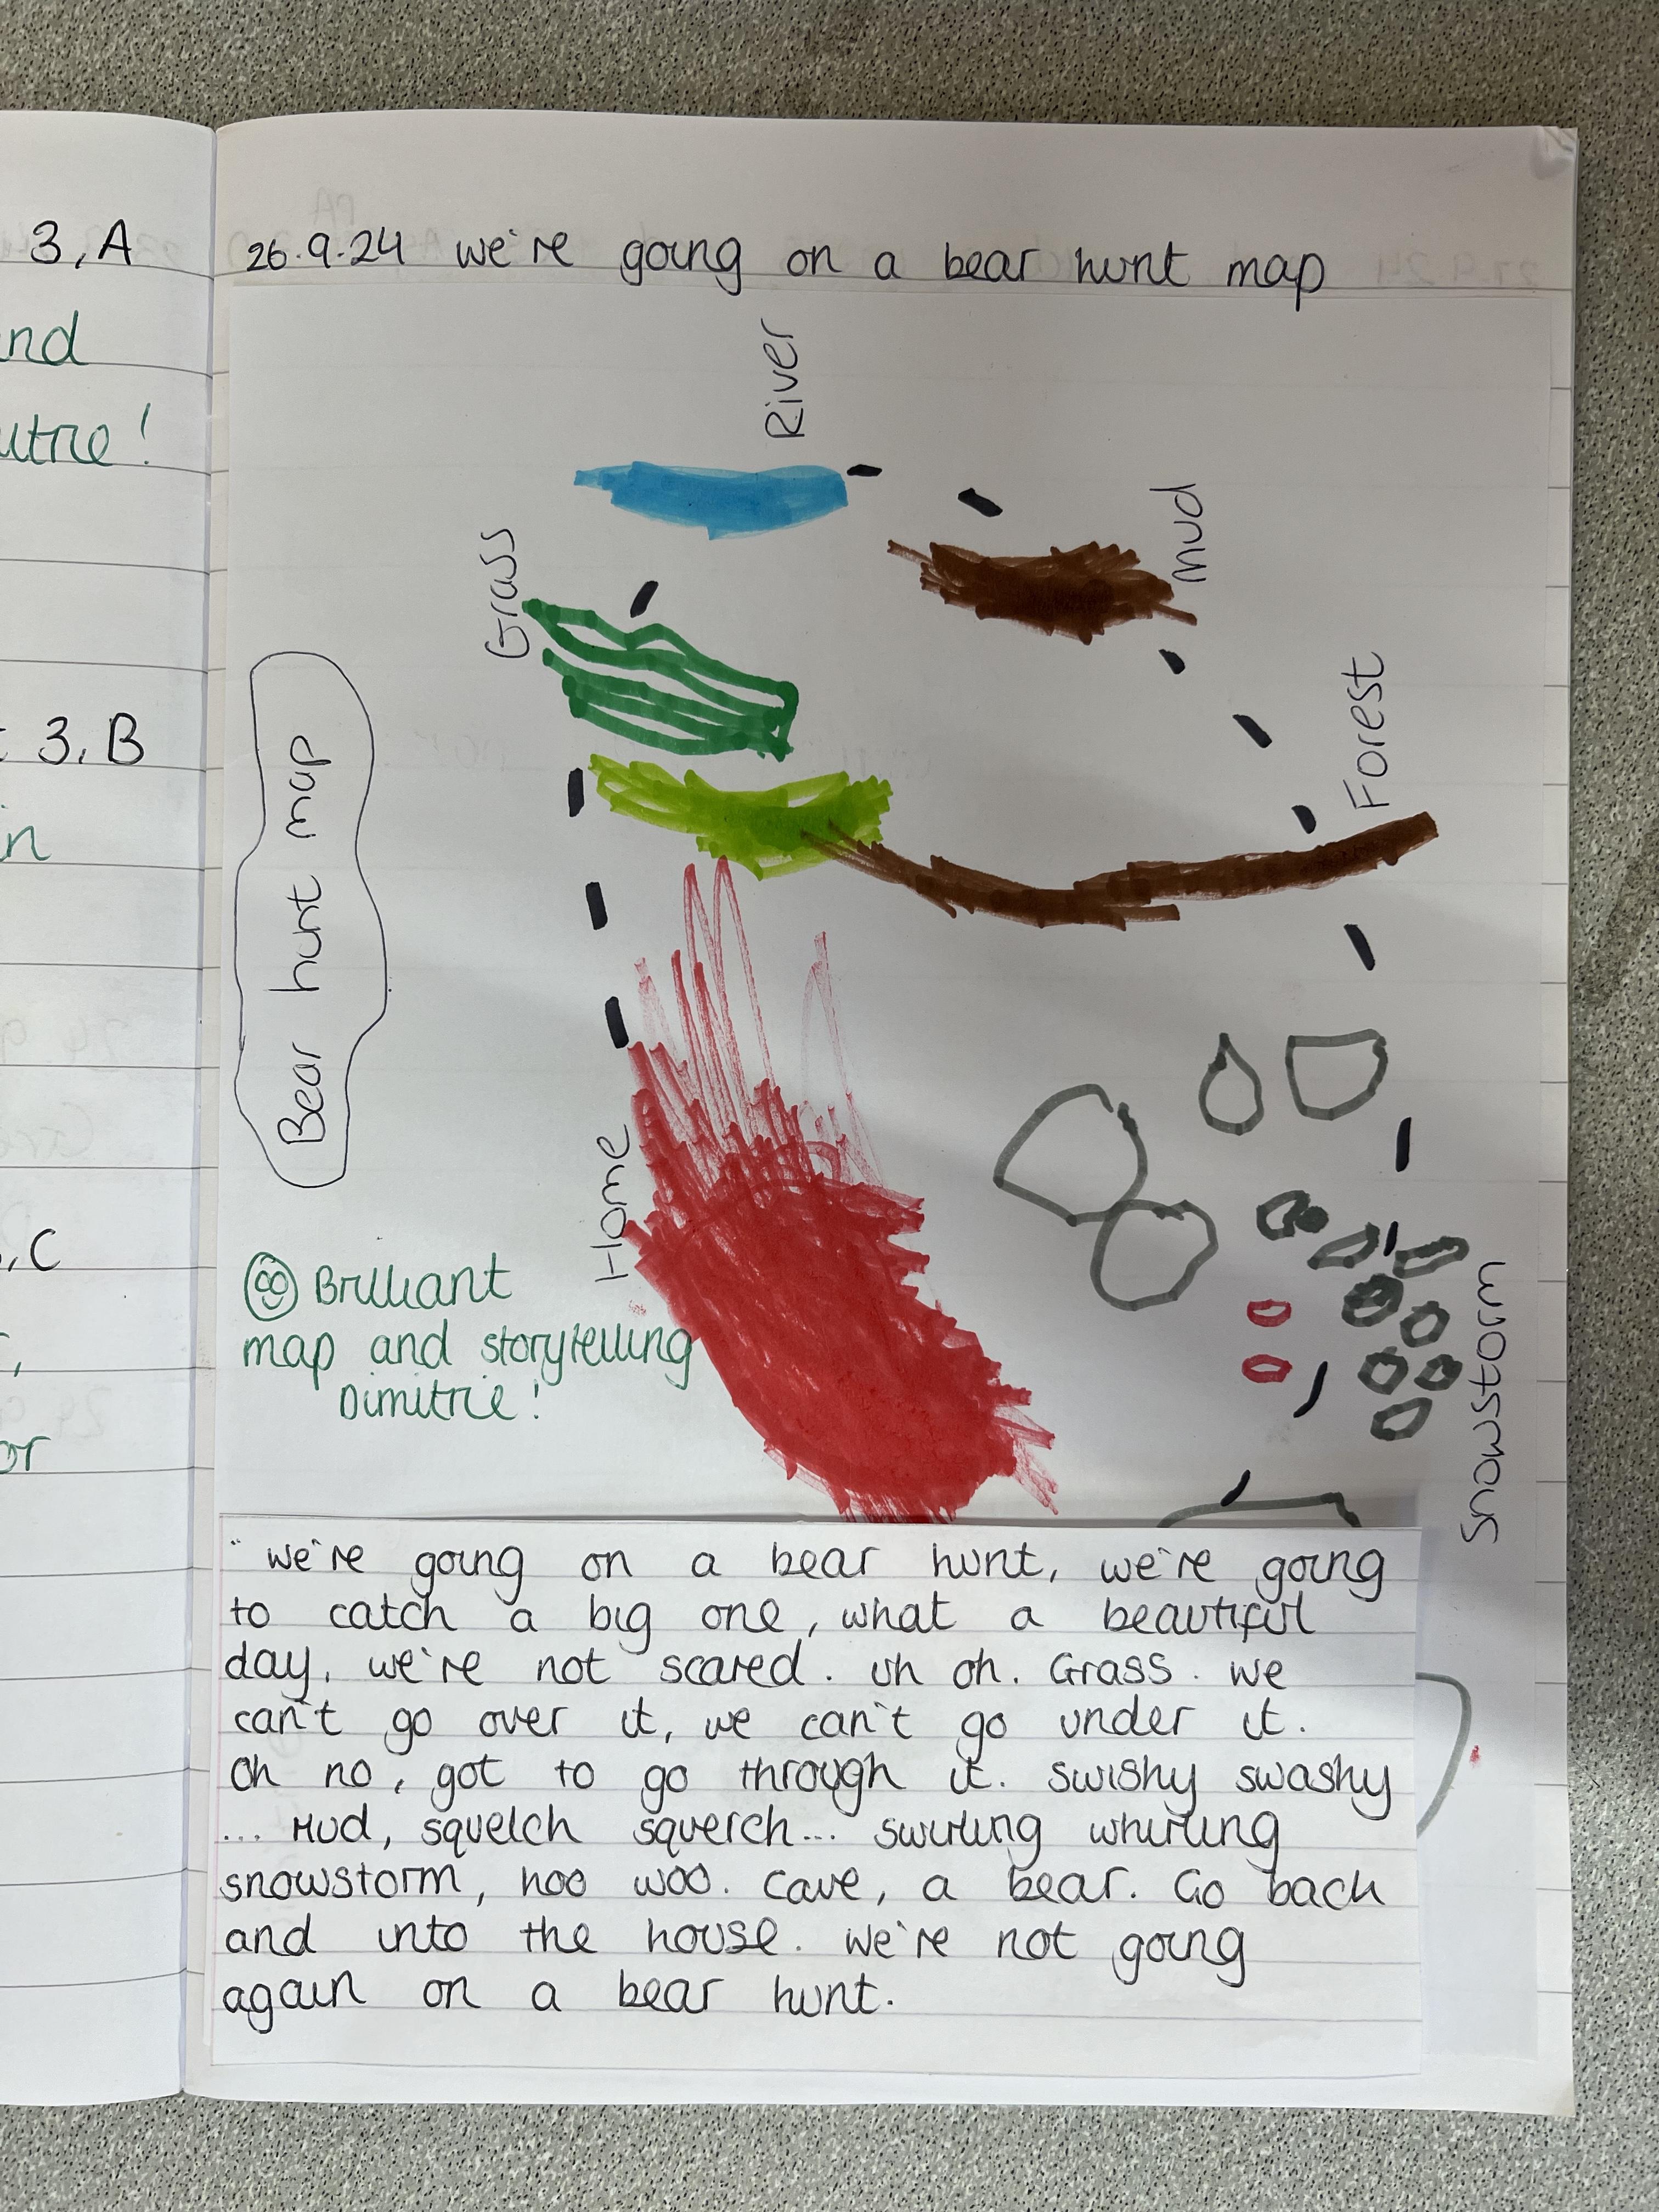 3, A
nd
utrie!
3, B
in
, C
or
26.9.24 we're going on a bear hunt map
River
Grass
Mud
Forest
Bear hunt map
Home
Snowstorm
Brilliant
map and storytelling
Dimitrie!
"we're going on a bear hunt, we're going
to catch a big one, what a beautiful
day. we're not scared. uh oh. Grass. we
can't go over it, we can't go under it.
Oh no, got to go through it. swishy swashy
... Mud, squelch squerch... swirling whirling
snowstorm, hoo woo. Cave, a bear. Go back
and into the house. we're not going
again on a bear hunt.